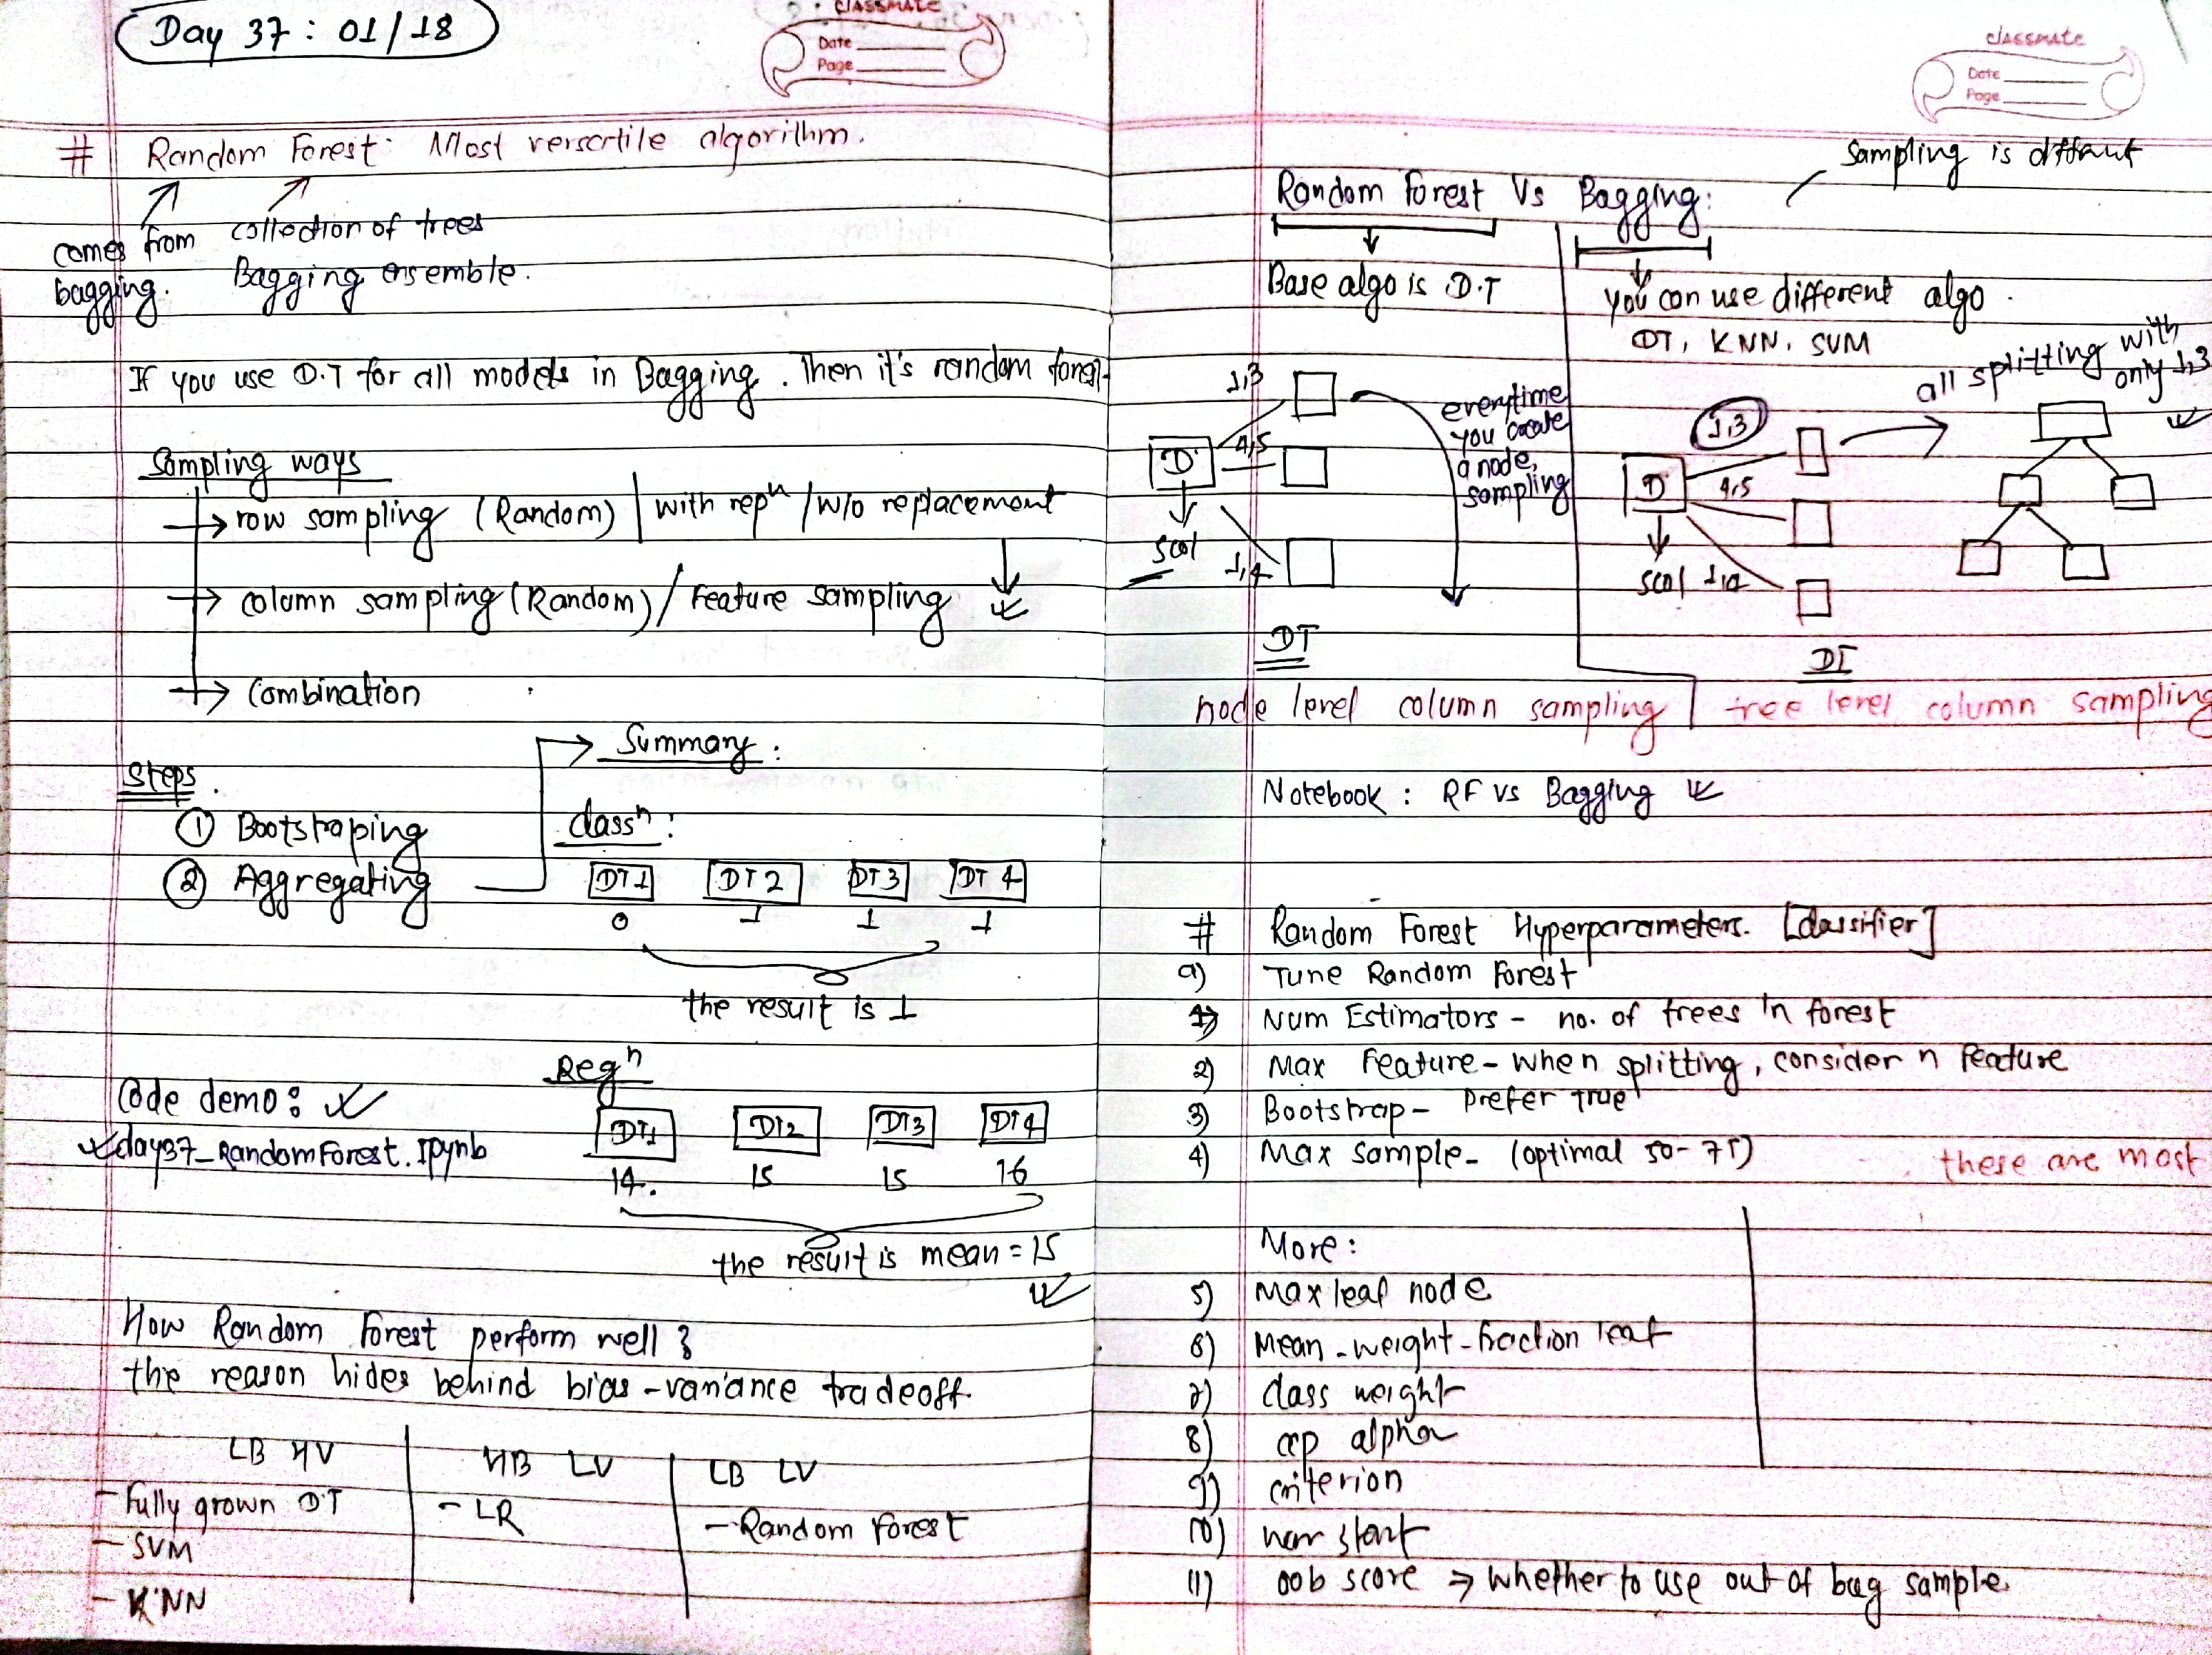 Day 37 : 01/18
classmate
Date
Page
# Random Forest: Most versertile algorithm.
comes from bagging.
collection of trees
Bagging ensemble.
If you use D.T for all models in Bagging. Then it's random forest
Sampling ways
→ row sampling (Random) | with repⁿ / w/o replacement
→ column sampling (Random) / Feature sampling
→ Combination
Steps.
① Bootstraping
② Aggregating
→ Summary :
classⁿ :
DT1 DT2 DT3 DT4
0 1 1 1
the result is 1
Regⁿ
Code demo :
day37_RandomForest.ipynb
DT1 DT2 DT3 DT4
14. 15 15 16
the result is mean = 15
How Random Forest perform well ?
the reason hides behind bias-variance tradeoff.
LB HV
- Fully grown DT
- SVM
- KNN
HB LV
- LR
LB LV
- Random Forest
classmate
Date
Page
Sampling is
Random Forest Vs Bagging:
Base algo is D.T
you can use different algo.
DT, KNN, SVM
1,3
4,5
1,4
D
5col
everytime
you create
a node,
sampling
DT
1,3
4,5
D
5col
all splitting with
only 1,3
DT
node level column sampling | tree level column sampling
Notebook : RF vs Bagging
# Random Forest Hyperparameters. [classifier]
a) Tune Random Forest
1) Num Estimators - no. of trees in forest
2) Max Feature - when splitting, consider n feature
3) Bootstrap - Prefer True
4) Max sample - (optimal 50-75)
these are most
More :
5) Max leaf node
6) Mean-weight-fraction leaf
7) class weight
8) ccp alpha
9) criterion
10) warm start
11) oob score → whether to use out of bag sample.